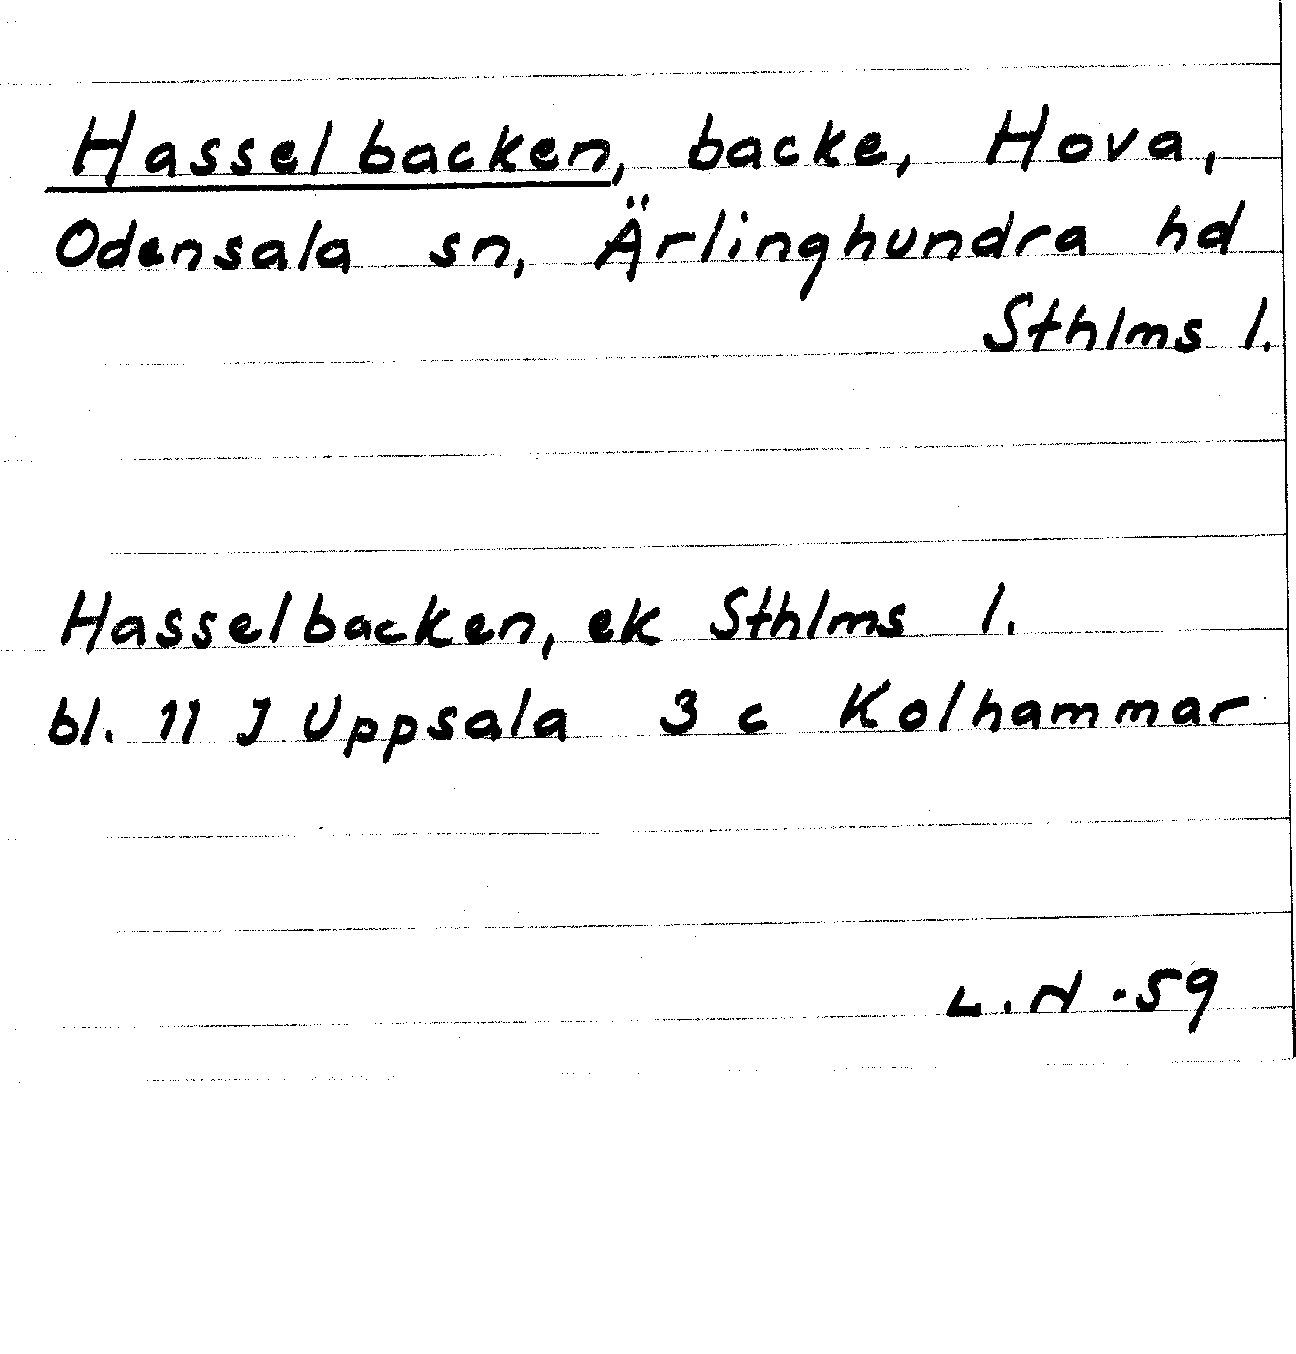 Hasselbacken, backe, Hova,
Odensala sn, Ärlinghundra hd
Sthlms l.
Hasselbacken, ek Sthlms l.
bl. 11 J Uppsala 3 c Kolhammar
L.N.59